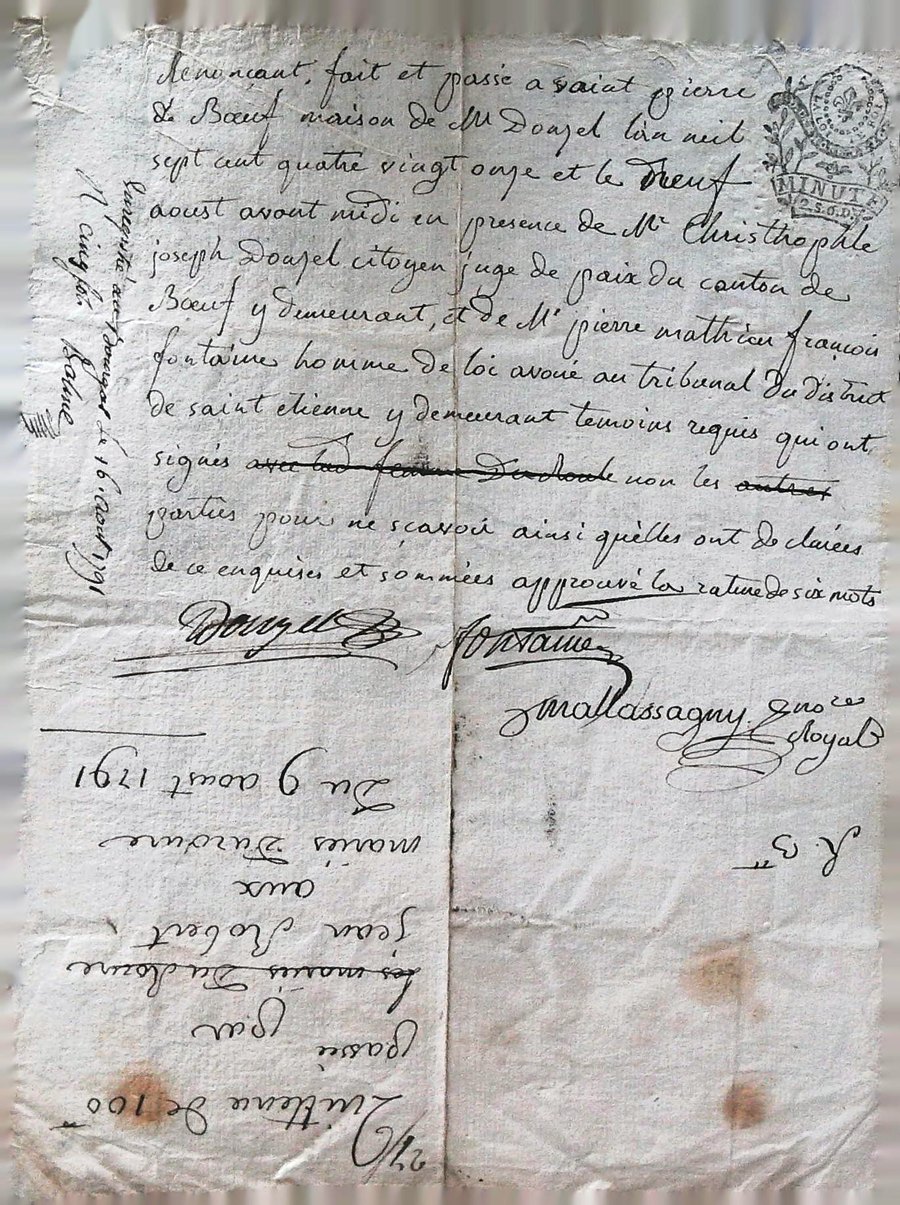 Renonçant, fait et passé a saint pierre
de Bœuf maison de Mr Donzel l'an mil
sept cent quatre vingt onze et le neuf
aoust avant midi en presence de Mr Christhophle
joseph Donzel citoyen juge de paix du canton de
Bœuf y demeurant, et de Mr pierre mathieu françois
fontaine homme de loi avoué au tribunal du district
de saint etienne y demeurant temoins requis qui ont
signés avec lad femme non les autres
parties pour ne sçavoir ainsi quèlles ont declarées
de ce enquises et sommées approuvé la rature de six mots
Donzel fontaine
mallassagny nore
Royal
MINUTE
2.S.6.D.
Enregistré au le 16. aout 1791
R cinq sols
R. 3tt
Quittence de 100
passée
par
les mariés
jean Robert
aux
mariés
Du 9 aoust 1791